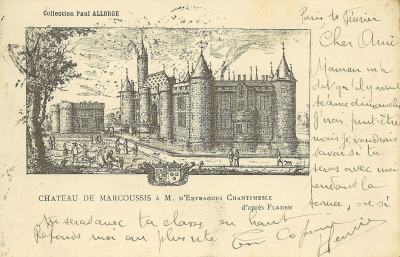 Collection Paul ALLORGE
Paris le Février
Cher Ami
Maman m'a
dit qu'il y aurait
séance dimanche
J'irai peut-être
mais je voudrais
savoir si tu
seras avec moi
pendant la
séance, ou si
CHATEAU DE MARCOUSSIS à M. D'ENTRAGUES CHANTEMESLE
d'après FLAMEN
tu seras avec ta classe en haut
Réponds moi au plus vite Ton Copain
Henri